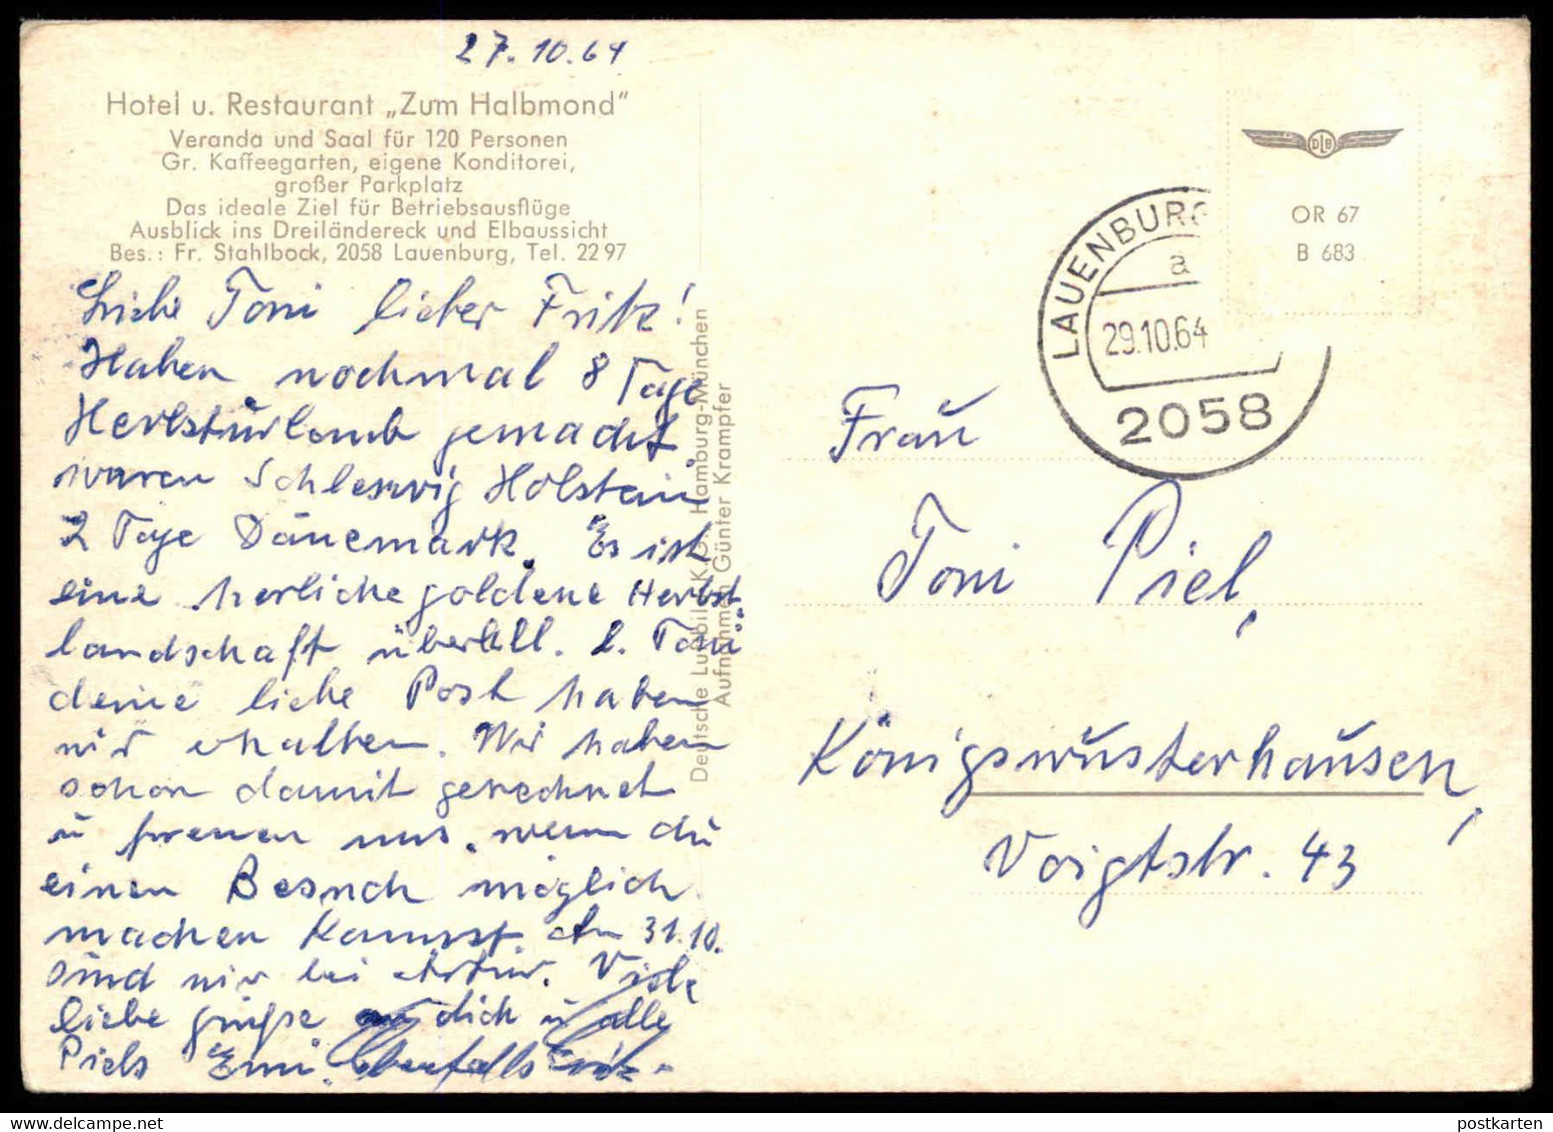 27.10.64
Hotel u. Restaurant „Zum Halbmond"
Veranda und Saal für 120 Personen
Gr. Kaffeegarten, eigene Konditorei,
großer Parkplatz
Das ideale Ziel für Betriebsausflüge
Ausblick ins Dreiländereck und Elbaussicht
Bes.: Fr. Stahlbock, 2058 Lauenburg, Tel. 22 97
Liebe Toni lieber Fritz!
Haben nochmal 8 Tage
Herbsturlaub gemacht
waren Schleswig Holstein
2 Tage Dänemark. Es ist
eine herliche goldene Herbst
landschaft überall. L. Toni
deine liebe Post haben
wir erhalten. Wir haben
schon damit gerechnet
u freuen uns, wenn du
einen Besuch möglich
machen kannst. Am 31.10.
sind wir bei Artur. Viele
liebe grüße dich u alle
Piels Emi. ebenfalls
Deutsche Luftbild K.G. Hamburg-München
Aufnahmen Günter Krampfer
DLB
OR 67
B 683
LAUENBURG
a
29.10.64
2058
Frau
Toni Piel,
Königswusterhausen,
Voigtstr. 43
postkarten